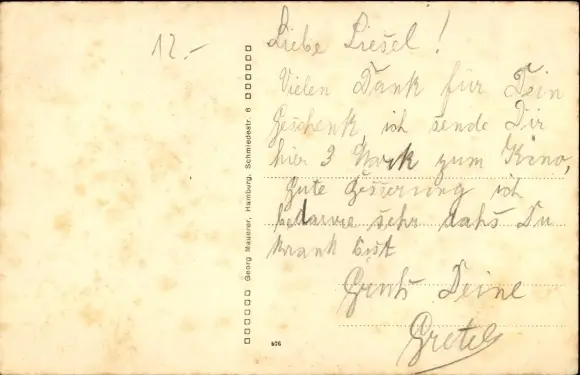 12.-
Liebe Liesel!
Vielen Dank für Dein
Geschenk, ich sende Dir
hier 3 Mark zum Kino,
Gute Besserung ich
bedaure sehr dahs Du
krank bist
Gruß Deine
Gretel
Georg Mauerer, Hamburg, Schmiedestr. 6